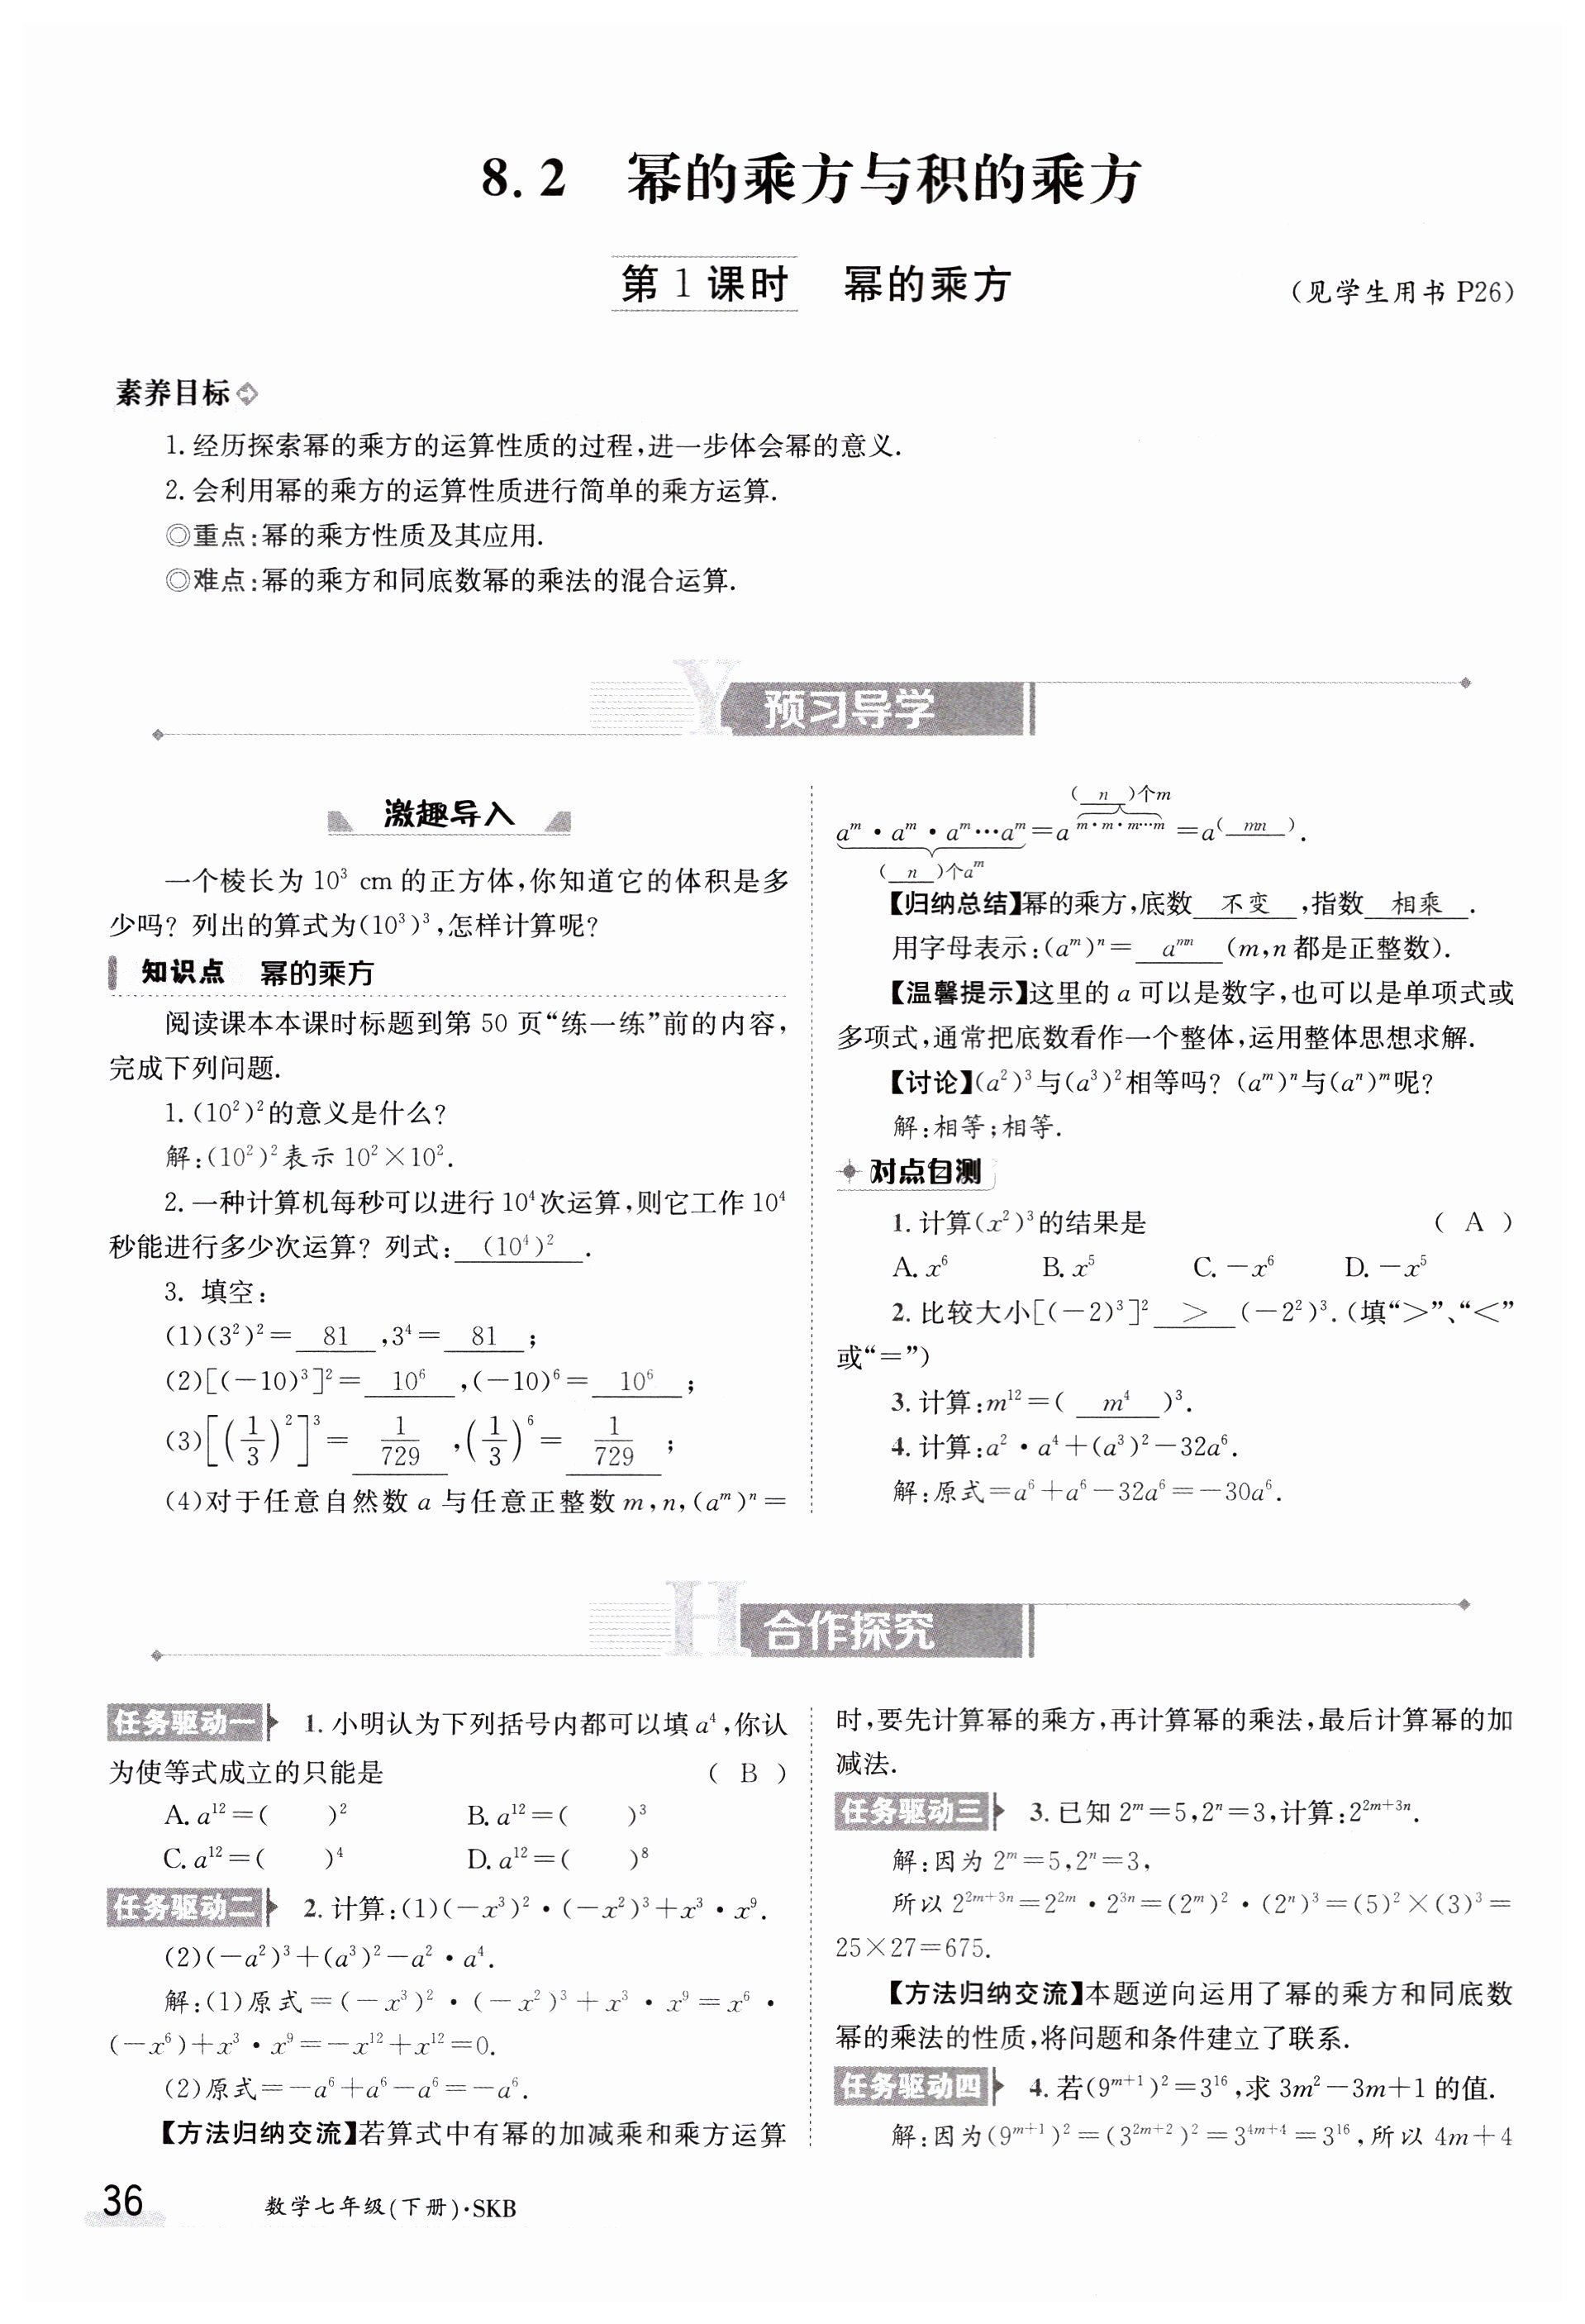 8.2 幂的乘方与积的乘方
第1课时 幂的乘方 (见学生用书 P26)
素养目标
1.经历探索幂的乘方的运算性质的过程,进一步体会幂的意义.
2.会利用幂的乘方的运算性质进行简单的乘方运算.
◎重点:幂的乘方性质及其应用.
◎难点:幂的乘方和同底数幂的乘法的混合运算.
Y 预习导学
激趣导入
一个棱长为 10³ cm 的正方体,你知道它的体积是多
少吗? 列出的算式为(10³)³,怎样计算呢?
知识点 幂的乘方
阅读课本本课时标题到第 50 页“练一练”前的内容,
完成下列问题.
1.(10²)²的意义是什么?
解:(10²)²表示 10²×10².
2.一种计算机每秒可以进行 10⁴次运算,则它工作 10⁴
秒能进行多少次运算? 列式: (10⁴)² .
3. 填空:
(1)(3²)²= 81 ,3⁴= 81 ;
(2)[(-10)³]²= 10⁶ ,(-10)⁶= 10⁶ ;
(3)[(1/3)²]³= 1/729 ,(1/3)⁶= 1/729 ;
(4)对于任意自然数 a 与任意正整数 m,n,(aᵐ)ⁿ=
( n )个m
aᵐ·aᵐ·aᵐ…aᵐ=a^(m·m·m…m)=a^( mn ).
( n )个aᵐ
【归纳总结】幂的乘方,底数 不变 ,指数 相乘 .
用字母表示:(aᵐ)ⁿ= aᵐⁿ (m,n 都是正整数).
【温馨提示】这里的 a 可以是数字,也可以是单项式或
多项式,通常把底数看作一个整体,运用整体思想求解.
【讨论】(a²)³与(a³)²相等吗? (aᵐ)ⁿ与(aⁿ)ᵐ呢?
解:相等;相等.
对点自测
1.计算(x²)³的结果是 ( A )
A. x⁶ B. x⁵ C. -x⁶ D. -x⁵
2.比较大小[(-2)³]² > (-2²)³.(填“>”、“<”
或“=”)
3.计算:m¹²=( m⁴ )³.
4.计算:a²·a⁴+(a³)²-32a⁶.
解:原式=a⁶+a⁶-32a⁶=-30a⁶.
H 合作探究
任务驱动一 1.小明认为下列括号内都可以填 a⁴,你认
为使等式成立的只能是 ( B )
A. a¹²=( )² B. a¹²=( )³
C. a¹²=( )⁴ D. a¹²=( )⁸
任务驱动二 2.计算:(1)(-x³)²·(-x²)³+x³·x⁹.
(2)(-a²)³+(a³)²-a²·a⁴.
解:(1)原式=(-x³)²·(-x²)³+x³·x⁹=x⁶·
(-x⁶)+x³·x⁹=-x¹²+x¹²=0.
(2)原式=-a⁶+a⁶-a⁶=-a⁶.
【方法归纳交流】若算式中有幂的加减乘和乘方运算
时,要先计算幂的乘方,再计算幂的乘法,最后计算幂的加
减法.
任务驱动三 3.已知 2ᵐ=5,2ⁿ=3,计算:2²ᵐ⁺³ⁿ.
解:因为 2ᵐ=5,2ⁿ=3,
所以 2²ᵐ⁺³ⁿ=2²ᵐ·2³ⁿ=(2ᵐ)²·(2ⁿ)³=(5)²×(3)³=
25×27=675.
【方法归纳交流】本题逆向运用了幂的乘方和同底数
幂的乘法的性质,将问题和条件建立了联系.
任务驱动四 4.若(9ᵐ⁺¹)²=3¹⁶,求 3m²-3m+1 的值.
解:因为(9ᵐ⁺¹)²=(3²ᵐ⁺²)²=3⁴ᵐ⁺⁴=3¹⁶,所以 4m+4
36 数学七年级(下册)·SKB